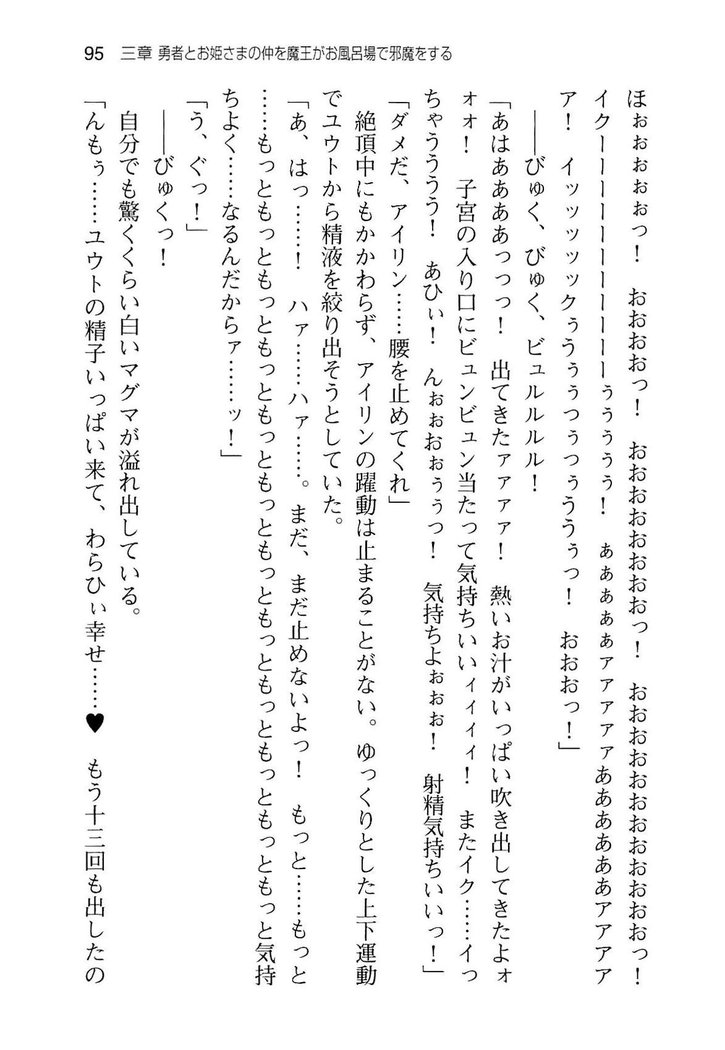 95 三章 勇者とお姫さまの仲を魔王がお風呂場で邪魔をする
ほぉぉぉぉぉっ！　おおおおっ！　おおおおおおおおっ！　おおおおおおおおおおおっ！
イクーーーーーーーーーーぅぅぅぅぅ！　ぁぁぁぁぁァァァァァあああああああァァァァ
ア！　イッッッッックぅうぅぅつぅつぅううぅっ！　おおおっ！」
――びゅく、びゅく、ビュルルルル！
「あはああああっっっ！　出てきたァァァァ！　熱いお汁がいっぱい吹き出してきたよォ
ォォ！　子宮の入り口にビュンビュン当たって気持ちいいィィィィ！　またイク……イっ
ちゃうううう！　あひぃ！　んぉぉおぉぅぅっ！　気持ちよぉぉぉ！　射精気持ちいいっ！」
「ダメだ、アイリン……腰を止めてくれ」
絶頂中にもかかわらず、アイリンの躍動は止まることがない。ゆっくりとした上下運動
でユウトから精液を絞り出そうとしていた。
「あ、はっ……！　ハァ……ハァ……。まだ、まだ止めないよっ！　もっと……もっと
……もっともっともっともっともっともっともっともっともっともっともっともっと気持
ちよく……なるんだからァ……ッ！」
「う、ぐっ！」
――びゅくっ！
自分でも驚くくらい白いマグマが溢れ出している。
「んもぅ……ユウトの精子いっぱい来て、わらひぃ幸せ……♥　もう十三回も出したの